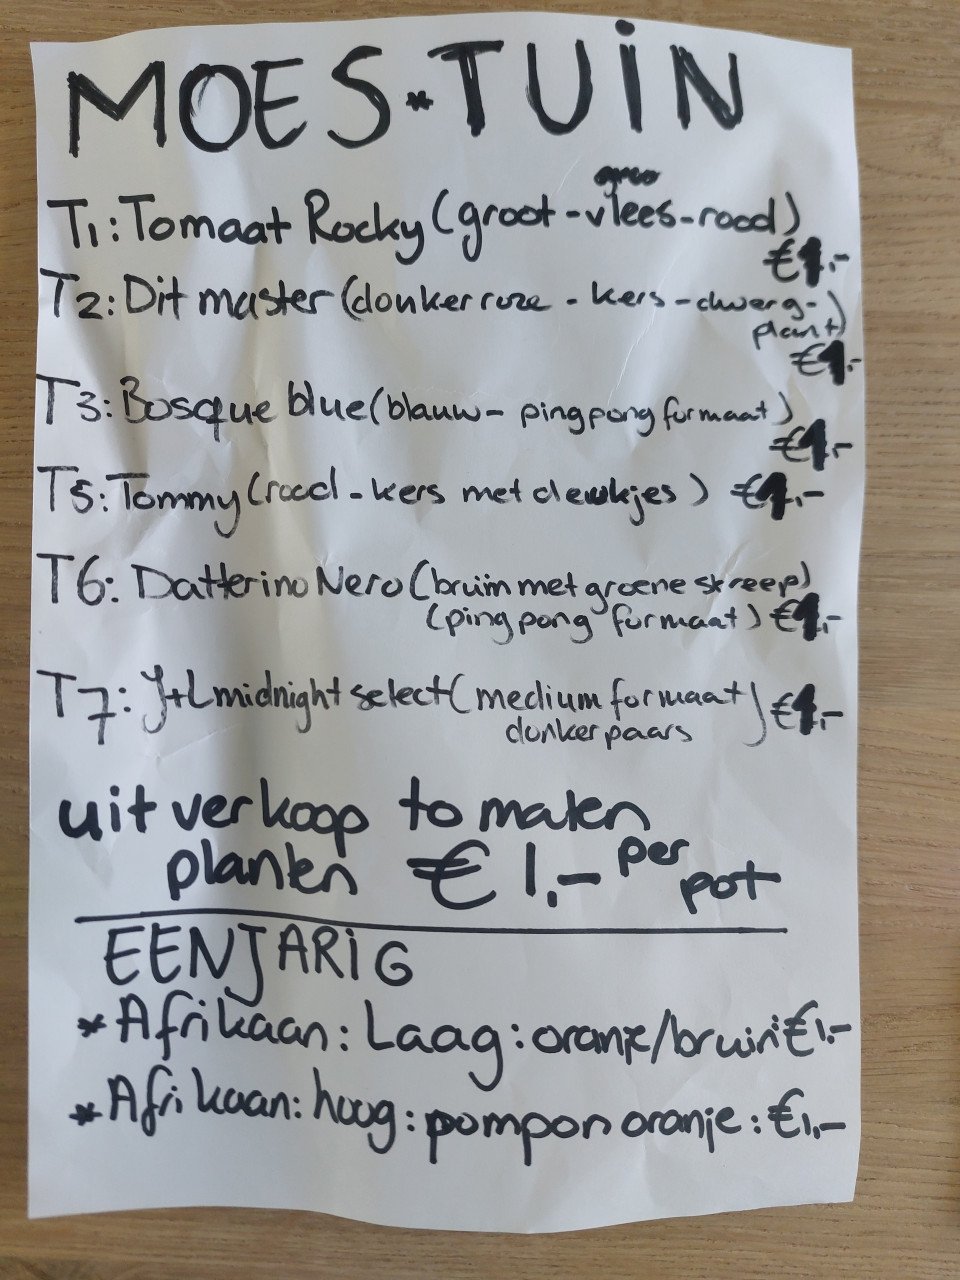 MOES*TUiN
T1: Tomaat Rocky (groot-vlees-rood)
€1,-
T2: Dit master (donkerroze - kers - dwerg-
plant)
€1,-
T3: Bosque blue (blauw - pingpong formaat)
€1,-
T5: Tommy (rood - kers met deukjes) €1,-
T6: Datterino Nero (bruin met groene streep)
(pingpong formaat) €1,-
T7: J+L midnight select (medium formaat
donker paars) €1,-
uitverkoop tomaten
planten €1,- per
pot
EENJARiG
* Afrikaan: Laag: oranje/bruin: €1,-
* Afrikaan: hoog: pompon oranje: €1,-